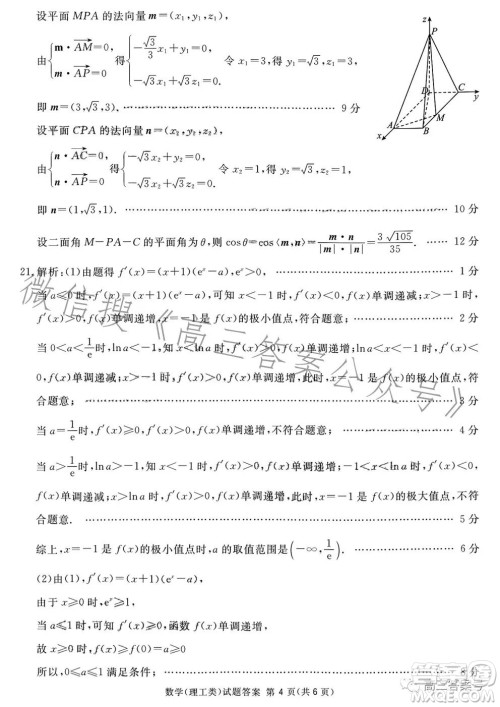 设平面 MPA 的法向量 m=(x₁,y₁,z₁),
由{m·AM=0, m·AP=0 得{-√3/3x₁+y₁=0, -√3x₁+√3z₁=0. 令 x₁=3,得{y₁=√3, z₁=3.
即 m=(3,√3,3). 9 分
设平面 CPA 的法向量 n=(x₂,y₂,z₂),
由{n·AC=0, n·AP=0 得{-√3x₂+y₂=0, -√3x₂+√3z₂=0. 令 x₂=1,得{y₂=√3, z₂=1.
即 n=(1,√3,1). 10 分
设二面角 M-PA-C 的平面角为θ,则 cosθ=cos⟨m,n⟩=m·n/|m|·|n|=3√105/35. 12 分
z
P
D
C
y
A
B
M
x
21.解析:(1)由题得 f′(x)=(x+1)(eˣ-a),eˣ>0, 1 分
当 a≤0 时,f′(x)=(x+1)(eˣ-a),可知 x<-1 时,f′(x)<0,f(x)单调递减;x>-1 时,
f′(x)>0,f(x)单调递增,x=-1 为 f(x)的极小值点,符合题意; 2 分
当 0<a<1/e 时,ln a<-1,知 x>-1 时,f′(x)>0,f(x)单调递增;ln a<x<-1 时,f′(x)<
0,f(x)单调递减,x=-1 为 f(x)的极小值点,符
合题意; 3 分
当 a=1/e 时,f′(x)≥0,f(x)单调递增,不符合题意; 4 分
当 a>1/e 时,ln a>-1,知 x<-1 时,f′(x)>0,f(x)单调递增;-1<x<ln a 时,f′(x)<0,
f(x)单调递减;x>ln a 时,f′(x)>0,f(x)单调递增,x=-1 是 f(x)的极大值点,不符
合题意. 5 分
综上,x=-1 是 f(x)的极小值点时,a 的取值范围是(-∞,1/e). 6 分
(2)由(1)可知,f′(x)=(x+1)(eˣ-a),
由于 x≥0 时,eˣ≥1,
当 a≤1 时,f′(x)≥0,可知 x≥0 时,函数 f(x)单调递增,
故 x≥0 时,f(x)≥f(0)=0.
所以,0≤a≤1 满足条件; 8 分
数学(理工类)试题答案 第 4 页(共 6 页)
微信搜《高三答案公众号》
高三答案号